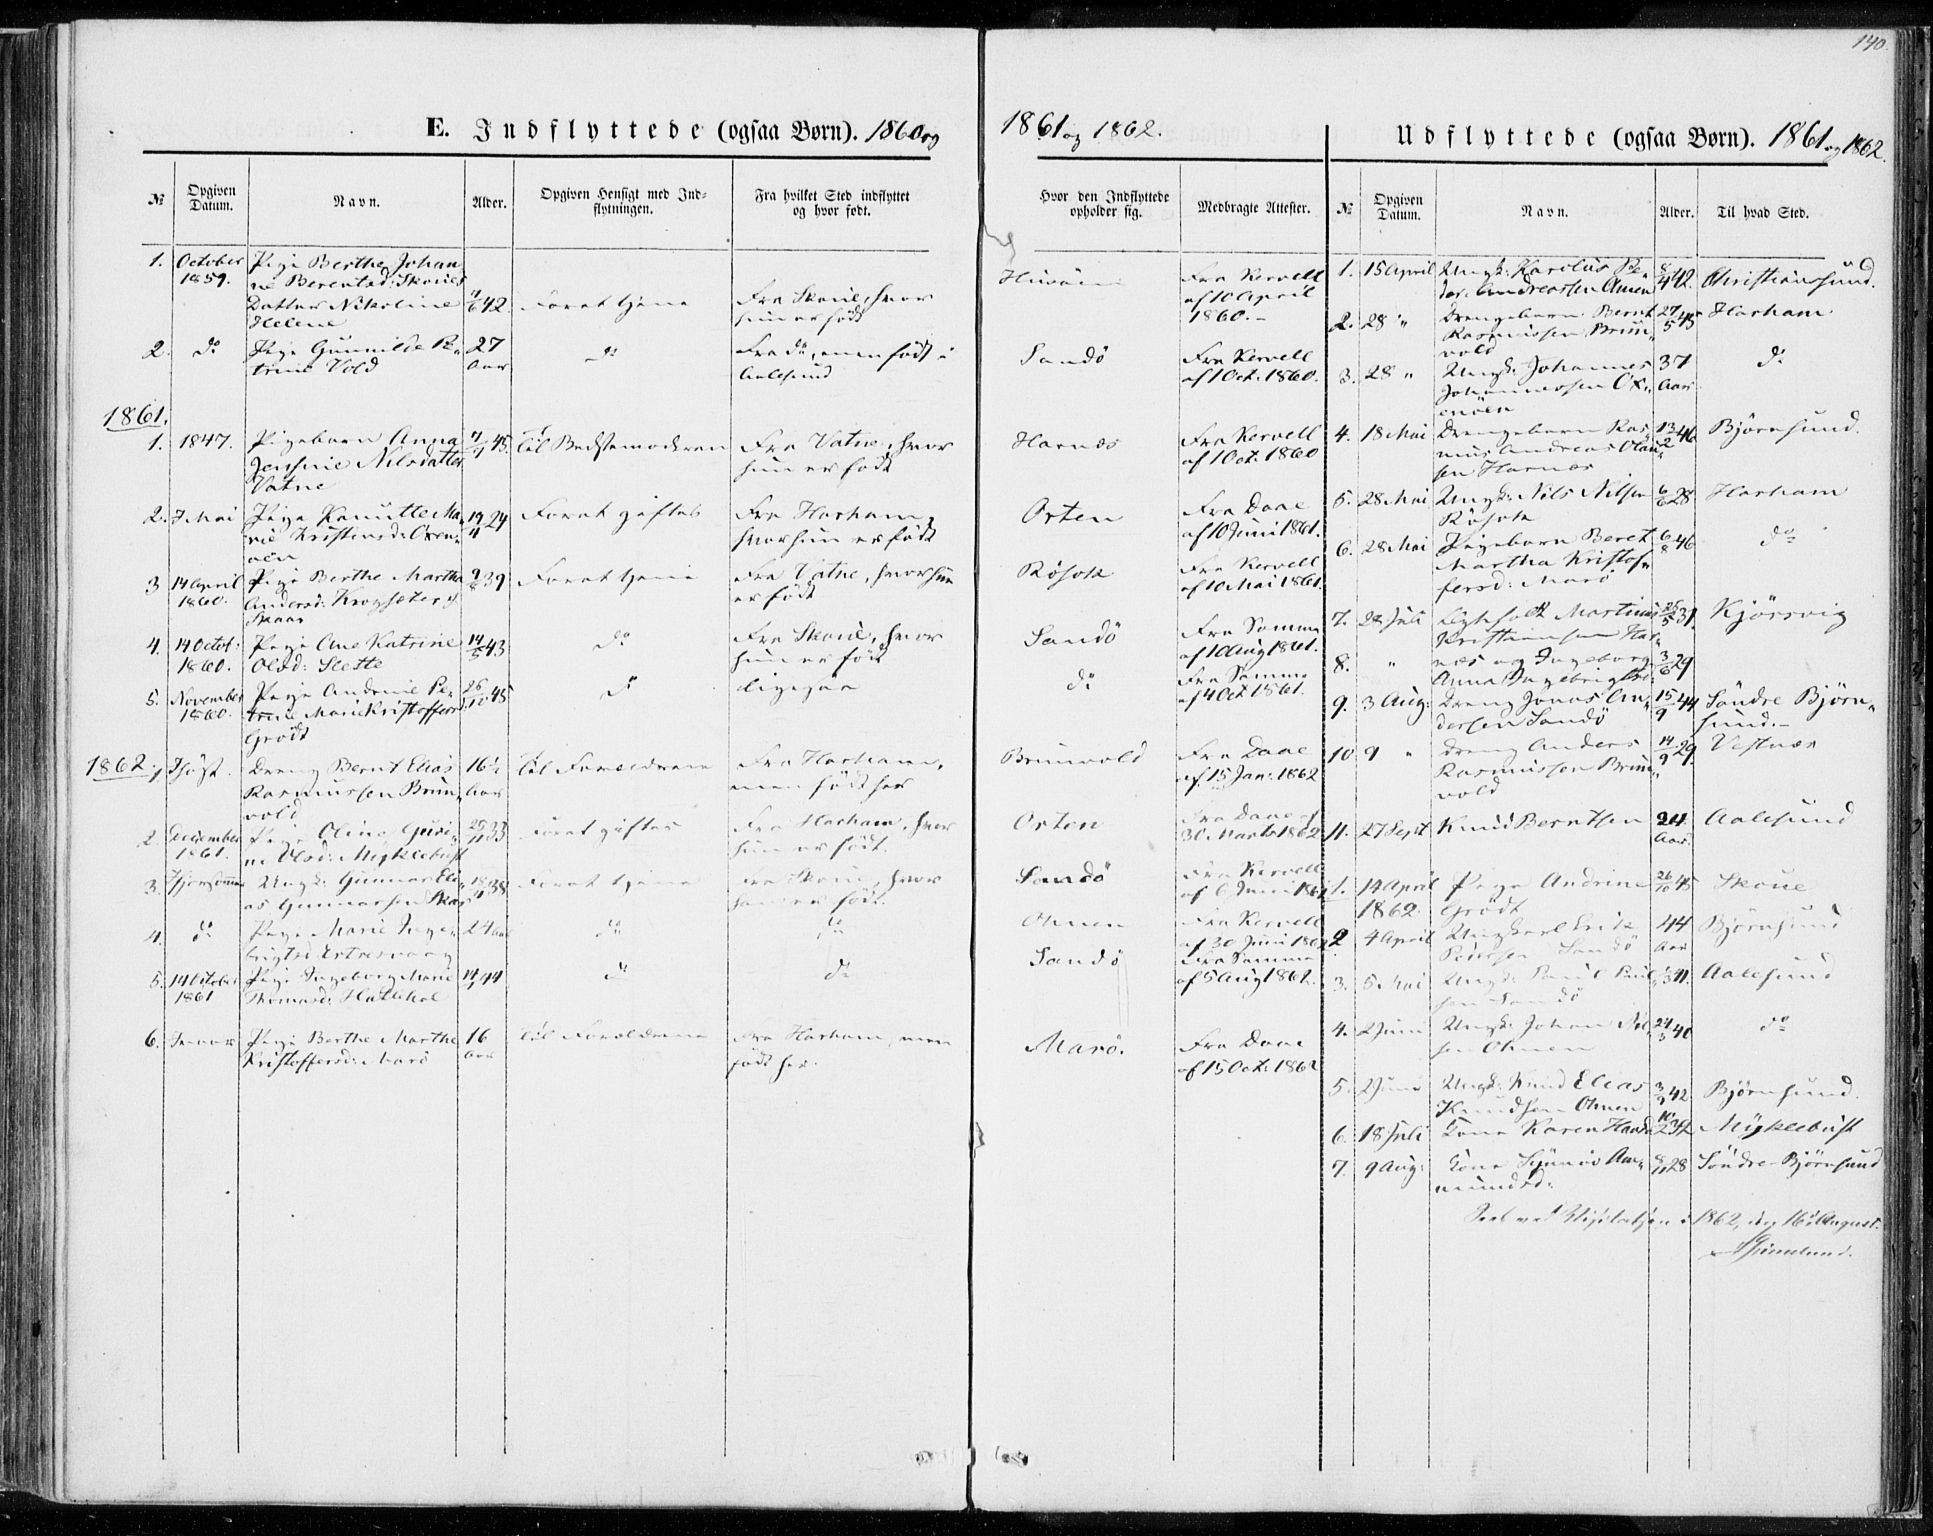 140.
E. Indflyttede (ogsaa Børn). 1860 og
1861 og 1862.
Udflyttede (ogsaa Børn). 1861 og 1862.
№
Opgiven
Datum.
Navn.
Alder.
Opgiven Hensigt med Ind-
flytningen.
Fra hvilket Sted indflyttet
og hvor født.
Hvor den Indflyttede
opholder sig.
Medbragte Attester.
№
Opgiven
Datum.
Navn.
Alder.
Til hvad Sted.
1.
October
1859.
Pige Berthe Johan
ne Berentsd: Skoues
Datter Nikoline
Helene
42.
Foret tjene
Fra Skoue, hvor
hun er født
Fra Kervell
af 10 April
1860.-
2.
do
Pige Gunnilde Pe-
trine Vold
27
Aar
do
Fra do, men født i
Aalesund
Sandö
Fra Kervell
af 1 Oct. 1860.
1861.
1.
1847.
Pigebarn Anna
Jensine Nilsdatter
Vatne
45.
til Bedstemoderen
Fra Vatne, hvor
hun er født
Harnæs
Fra Kervell
af 1 Oct. 1860
2.
7 Mai
Pige Knutte Ma-
rie Kristensd: Oxen-
öen
19/4 24
Foret giftes
Fra Harham,
hvor hun er født
Orten
Fra Daae
af 10 Juni 1861.
3
14 April
1860.
Pige Berthe Martha
Andersd: Krogsæter
Skaar
39
Foret tjene
Fra Vatne, hvor hun
er født
Rösok
Fra Kervell
af 10 Mai 1861.
4.
14 Octob:
1860.
Pige Ane Katrine
Olsd: Slette
14/5 43
do
Fra Skoue, hvor
hun er født
Sandö
Fra Samme
af 10 Aug 1861.
5.
November
1860.
Pige Andrine Pe-
trine Marie Kristoffersd:
Grødt
26/10 45
do
ligesaa
do
Fra Samme
af 4 Oct 1861.
1862.
1
Ihöst.
Dreng Bernt Elias
Rasmussen Brun-
vold
16½
Aar
til Forældrene
Fra Harham,
men født her
Brunvold
Fra Daae
af 15 Jan: 1862
2.
December
1861.
Pige Oline Guri-
ne Olsd: Myklebust
25/11 33
Foret giftes
Fra Harham, hvor
hun er født.
Orten
Fra Daae af
30 Marts 1862
3.
Ungk: Gunnar Eli-
as Gunnarsen Skaar
38
Foret tjene
Fra Skoue, hvor
han er født.
Sandö
Fra Kervell
af 6 Juni 1862
4.
do
Pige Marie Inge-
brigtsd:
24 Aar
do
do
Ohnen
Fra Kervell
af 30 Juni 1862
5.
14 October
1861
Pige Ingeborg Marie
Thomasd: Hattehol
44
do
do
Sandö
Fra Samme
af 5 Aug 1862.
6.
Pige Berthe Marthe
Kristoffersd: Marö
16
Aar
til Forældrene
Fra Harham, men
født her.
Marö.
Fra Daae
af 15 Oct. 1862
1.
15 April
Ungk: Karolus Pe-
der Andreassen Ohnen
8/4 42.
Christianssund.
2.
28 "
Drengebarn Bernt
Rasmussen Brun-
vold
27/5 45
Harham
3.
28 "
Ungk: Johannes
Johannessen Ox-
enöen
37
Aar
do
4.
18 Mai
Drengebarn Ras-
mus Andreas Olau-
sen Harnæs
13/2 46
Björnsund.
5.
28 Mai
Ungk: Nils Nilsen
Rösok
6/6 28
Harham
6.
28 Mai
Pigebarn Beret
Martha Kristof-
fersd: Marö
6/8 46
do
7.
22 Juli
Ægtefolk Martinus
Kristiansen Har-
25/5 31.
Kjörsvig
8.
"
næs og Ingeborg
Anna Ingebrigtsd:
3/6 29
9.
3 Aug:
Dreng Jonas An-
dersen Sandö
15/9 44
Söndre Björn-
sund.-
10
9 "
Dreng Anders
Rasmussen Brun-
vold
14/9 29.
Vestnæs
11.
27 Sept
Knud Berntsen
24
Aar.
Aalesund
1.
14 April
1862.
Pige Andrine
Grødt
26/10 45
Skoue
2
4 April
Ungkarl Erik
Pedersen Sandö
44
Aar
Björnsund
3.
5 Mai
Ungk: Poul Poul-
sen Sandö
41.
Aalesund
4.
2 Juni
Ungk: Johan Nil-
sen Ohnen
24/3 40
do
5.
2 Juni
Ungk: Knud Elias
Knudsen Ohnen
42
Björnsund.
6.
18 Juli
Kone Karen Hansd:
Myklebust
7.
9 Aug:
Kone Synnöv Am-
mundsd:
8/11 28
Söndre Björnsund
Seet ved Visitatsen i 1862, den 16de August.